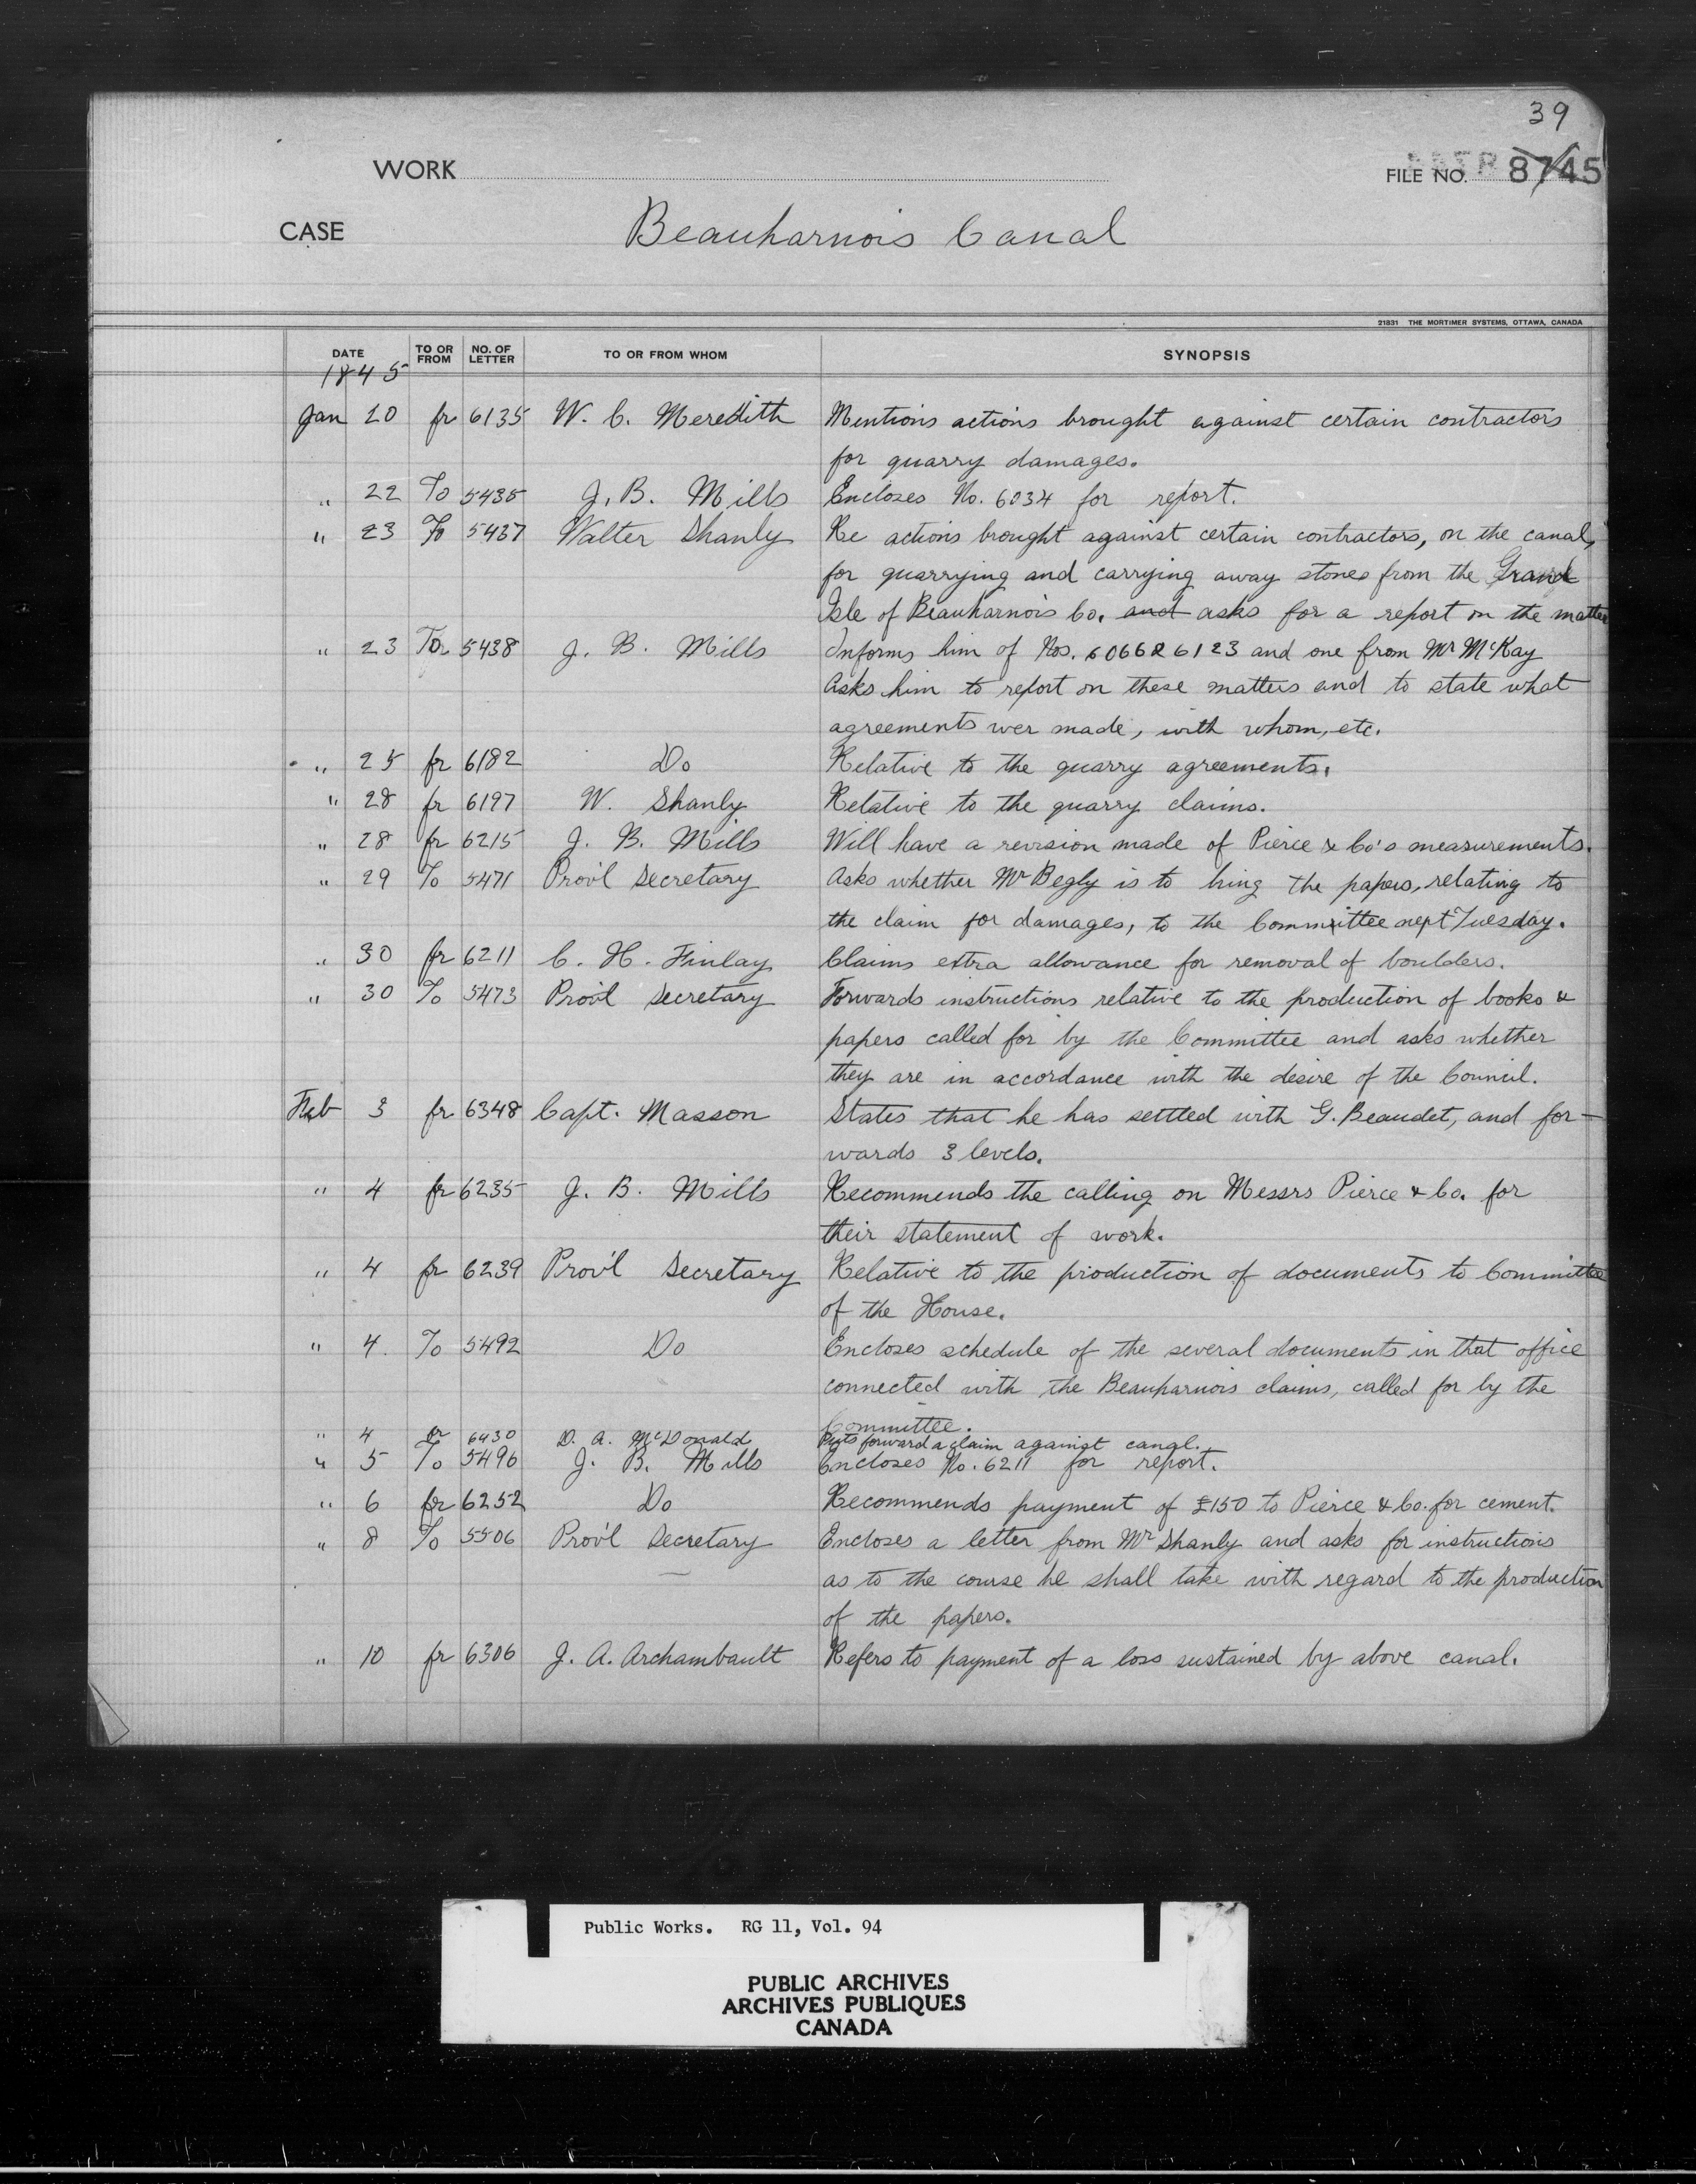 39
WORK
FILE NO. 8745
CASE Beauharnois Canal
21831 THE MORTIMER SYSTEMS, OTTAWA, CANADA
DATE TO OR FROM NO. OF LETTER TO OR FROM WHOM SYNOPSIS
1845
Jan 20 fr 6135 W. C. Meredith Mentions actions brought against certain contractors
for quarry damages.
" 22 To 5435 J. B. Mills Encloses No. 6034 for report.
" 23 To 5437 Walter Shanly Re actions brought against certain contractors, on the canal,
for quarrying and carrying away stones from the Grand
Isle of Beauharnois Co. and asks for a report on the matter
" 23 To 5438 J. B. Mills Informs him of Nos. 6066 & 6123 and one from Mr McKay
Asks him to report on these matters and to state what
agreements wer made, with whom, etc.
" 25 fr 6182 Do Relative to the quarry agreements.
" 28 fr 6197 W. Shanly Relative to the quarry claims.
" 28 fr 6215 J. B. Mills Will have a revision made of Pierce & Co's measurements.
" 29 To 5471 Prov'l Secretary Asks whether Mr Begly is to bring the papers, relating to
the claim for damages, to the Committee next Tuesday.
" 30 fr 6211 C. H. Finlay Claims extra allowance for removal of boulders.
" 30 To 5473 Prov'l Secretary Forwards instructions relative to the production of books &
papers called for by the Committee and asks whether
they are in accordance with the desire of the Council.
Feb 3 fr 6348 Capt. Masson States that he has settled with G. Beaudet, and for-
wards 3 levels.
" 4 fr 6235 J. B. Mills Recommends the calling on Messrs Pierce & Co. for
their statement of work.
" 4 fr 6239 Prov'l Secretary Relative to the production of documents to Committee
of the House.
" 4. To 5492 Do Encloses schedule of the several documents in that office
connected with the Beauharnois claims, called for by the
Committee.
" 4 fr 6430 D. A. McDonald Puts forward a claim against canal.
" 5 To 5496 J. B. Mills Encloses No. 6211 for report.
" 6 fr 6252 Do Recommends payment of £150 to Pierce & Co. for cement.
" 8 To 5506 Prov'l Secretary Encloses a letter from Mr Shanly and asks for instructions
as to the course he shall take with regard to the production
of the papers.
" 10 fr 6306 J. A. Archambault Refers to payment of a loss sustained by above canal.
Public Works. RG 11, Vol. 94
PUBLIC ARCHIVES
ARCHIVES PUBLIQUES
CANADA